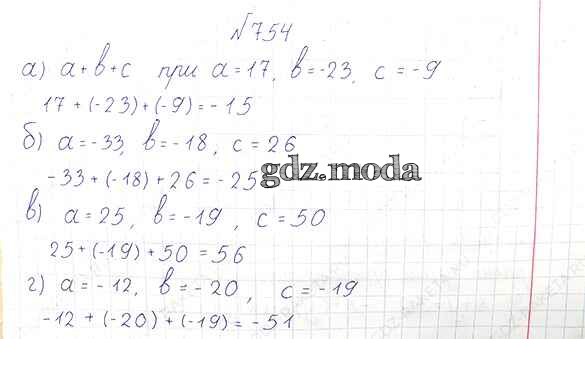 №754
а) a+b+c при a=17, b=-23, c=-9
17+(-23)+(-9)=-15
б) a=-33, b=-18, c=26
-33+(-18)+26=-25
gdz.moda
в) a=25, b=-19, c=50
25+(-19)+50=56
г) a=-12, b=-20, c=-19
-12+(-20)+(-19)=-51